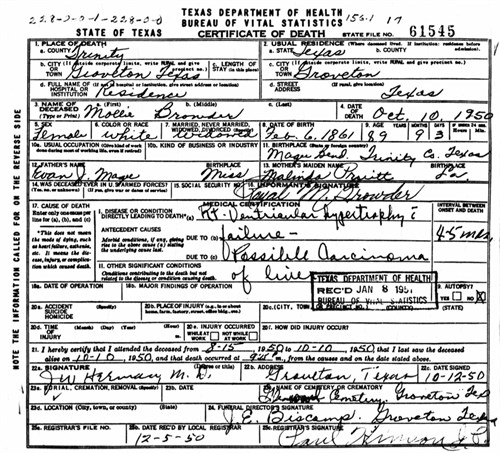 228-0-0-1-228-0-0
TEXAS DEPARTMENT OF HEALTH
BUREAU OF VITAL STATISTICS
STATE OF TEXAS
CERTIFICATE OF DEATH
STATE FILE NO. 61545
1. PLACE OF DEATH
a. COUNTY Trinity
2. USUAL RESIDENCE (Where deceased lived. If institution: residence before admission)
a. STATE Texas
b. COUNTY
b. CITY (If outside corporate limits, write RURAL and give precinct no.) OR TOWN Groveton Texas
c. LENGTH OF STAY (in this place)
c. CITY (If outside corporate limits, write RURAL and give precinct no.) OR TOWN Groveton
d. FULL NAME OF HOSPITAL OR INSTITUTION Residence
d. STREET ADDRESS (If rural, give location) Texas
3. NAME OF DECEASED (Type or Print)
a. (First) Molie
b. (Middle)
c. (Last)
4. DATE OF DEATH Oct, 10, 1950
5. SEX Female
6. COLOR OR RACE White
7. MARRIED, NEVER MARRIED, WIDOWED, DIVORCED (Specify)
8. DATE OF BIRTH Feb. 6, 1861
9. AGE YEARS 89
10a. USUAL OCCUPATION (Give kind of work done during most of working life, even if retired)
10b. KIND OF BUSINESS OR INDUSTRY
11. BIRTHPLACE Trinity Co. Texas
12. FATHER'S NAME
BIRTHPLACE Miss
13. MOTHER'S MAIDEN NAME Malinda Pruitt
BIRTHPLACE La
14. WAS DECEASED EVER IN U.S. ARMED FORCES?
15. SOCIAL SECURITY NO.
16. INFORMANT'S SIGNATURE
17. CAUSE OF DEATH
Enter only one cause per line for (a), (b), and (c)
*This does not mean the mode of dying, such as heart failure, asthenia, etc. It means the disease, injury, or complication which caused death.
MEDICAL CERTIFICATION
I. DISEASE OR CONDITION DIRECTLY LEADING TO DEATH* (a) Rt. Ventricular hypertrophy c
ANTECEDENT CAUSES
Morbid conditions, if any, giving rise to the above cause (a) stating the underlying cause last.
DUE TO (b) failure -
DUE TO (c) Possible Carcinoma of liver
INTERVAL BETWEEN ONSET AND DEATH
4-5 mos
II. OTHER SIGNIFICANT CONDITIONS
Conditions contributing to the death but not related to the disease or condition causing death.
TEXAS DEPARTMENT OF HEALTH
REC'D JAN 8 1951
BUREAU OF VITAL STATISTICS
18a. DATE OF OPERATION
18b. MAJOR FINDINGS OF OPERATION
19. AUTOPSY?
YES NO
20a. ACCIDENT SUICIDE HOMICIDE
20b. PLACE OF INJURY
20c. (CITY, TOWN,
20d. TIME OF INJURY
20e. INJURY OCCURRED WHILE AT WORK NOT WHILE AT WORK
20f. HOW DID INJURY OCCUR?
21. I hereby certify that I attended the deceased from 8-15 1950 to 10-10, 1950, that I last saw the deceased alive on 10-10, 1950, and that death occurred at m., from the causes and on the date stated above.
22a. SIGNATURE
22b. ADDRESS Groveton, Texas
22c. DATE SIGNED 10-12-50
23a. BURIAL, CREMATION, REMOVAL (Specify)
23b. DATE
23c. NAME OF CEMETERY OR CREMATORY Cemetery, Groveton Tex
23d. LOCATION (City, town, or county) (State)
24. FUNERAL DIRECTOR'S SIGNATURE J. E. Biscamp. Groveton Texas
25a. REGISTRAR'S FILE NO.
25b. DATE REC'D BY LOCAL REGISTRAR 12-5-50
25c. REGISTRAR'S SIGNATURE Paul
NOTE THE INFORMATION CALLED FOR ON THE REVERSE SIDE